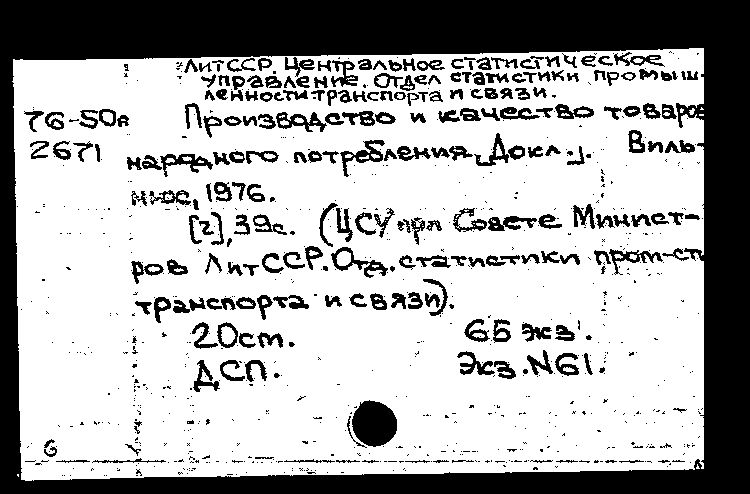 ЛитССР. Центральное статистическое
управление. Отдел статистики промыш-
ленности транспорта и связи.
76-50а Производство и качество товаров
2671 народного потребления. [Докл.]. Виль-
нюс, 1976.
[2], 39с. (ЦСУ при Совете Минист-
ров ЛитССР. Отд. статистики пром-сти
транспорта и связи).
20см. 65 экз.
ДСП. Экз. N61.
G